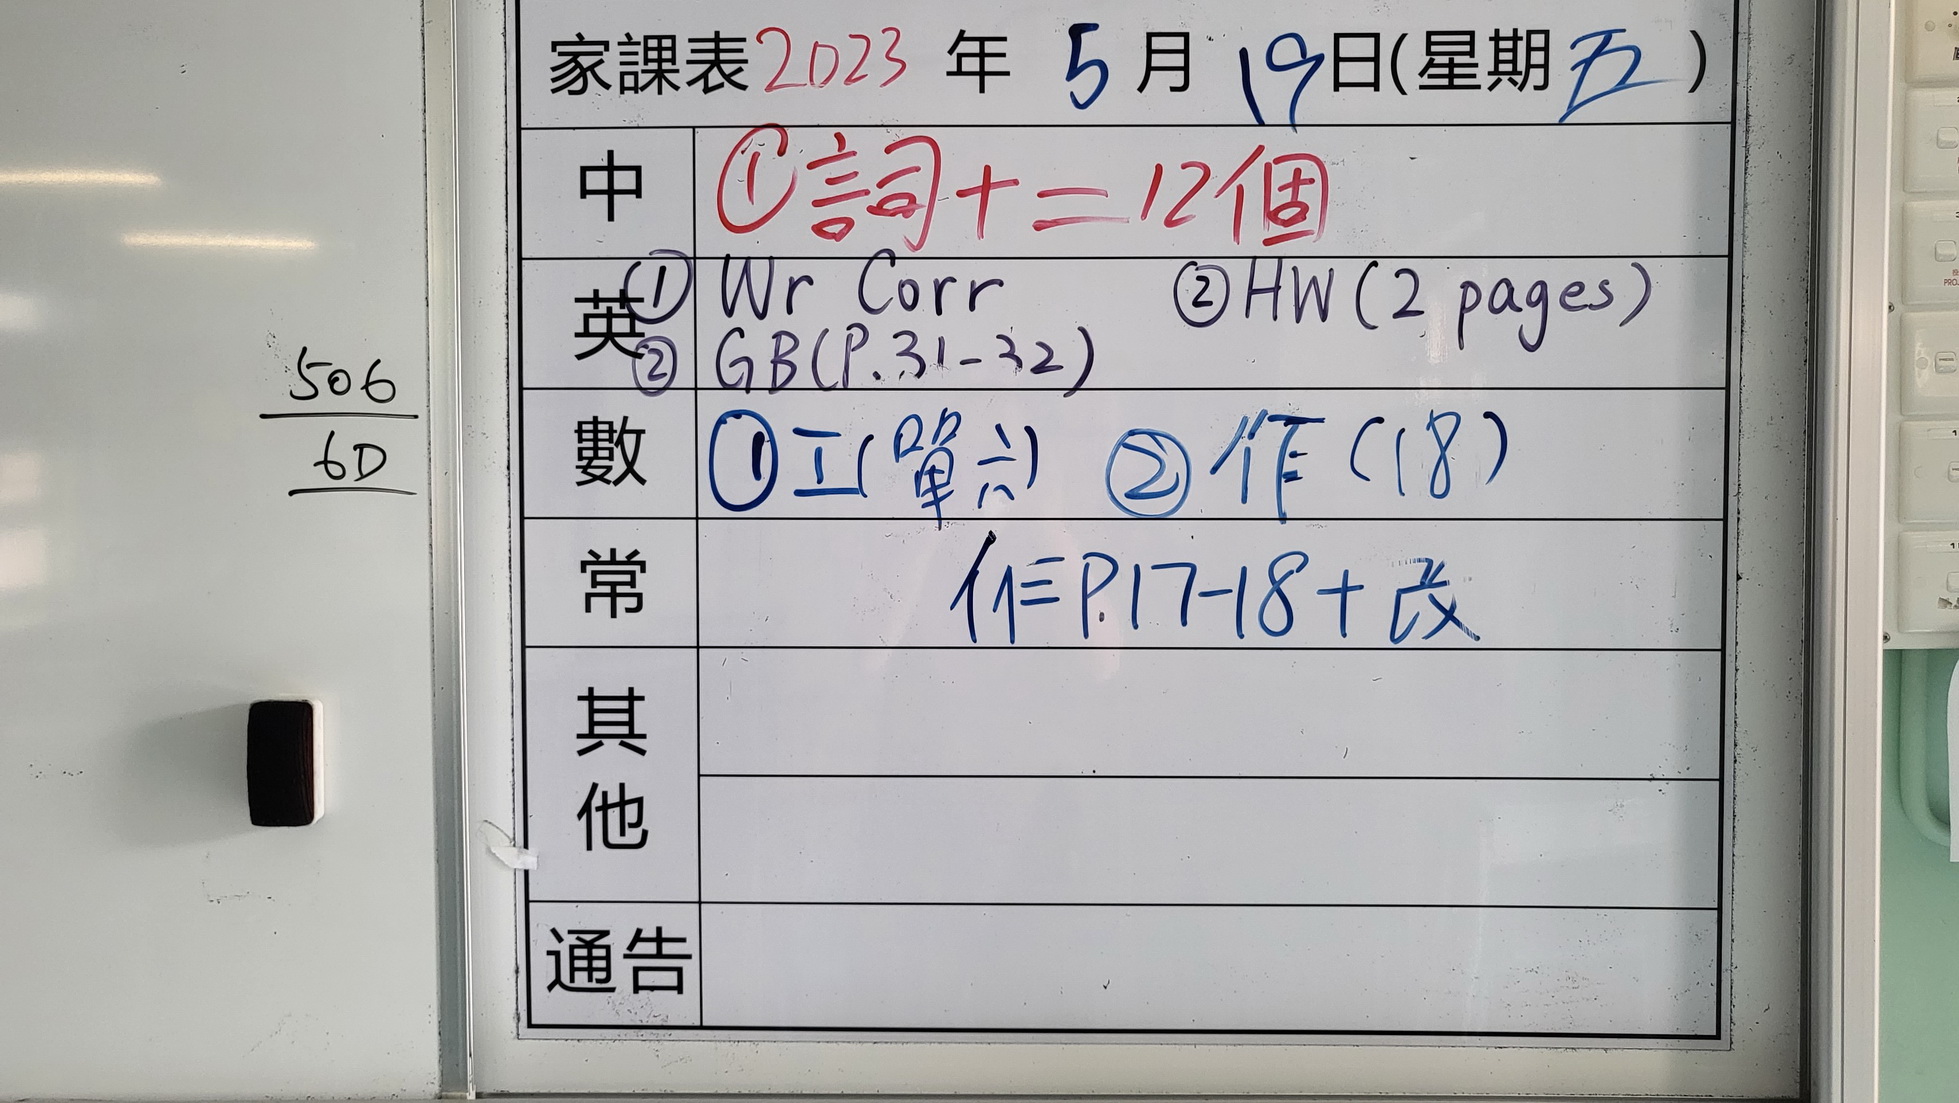 家課表2023 年 5 月 19日(星期五)
中 ①詞十二 12個
英 ① Wr Corr ② HW (2 pages)
② GB (P.31-32)
數 ①工(單六) ②作(18)
常 作P.17-18+改
其他
通告
506
6D